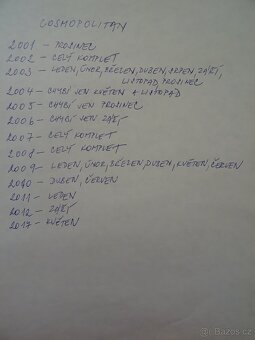 COSMOPOLITAN
2001 - PROSINEC
2002 - CELÝ KOMPLET
2003 - LEDEN, ÚNOR, BŘEZEN, DUBEN, SRPEN, ZÁŘÍ,
LISTOPAD, PROSINEC
2004 - CHYBÍ JEN KVĚTEN A LISTOPAD
2005 - CHYBÍ JEN PROSINEC
2006 - CHYBÍ JEN ZÁŘÍ
2007 - CELÝ KOMPLET
2008 - CELÝ KOMPLET
2009 - LEDEN, ÚNOR, BŘEZEN, DUBEN, KVĚTEN, ČERVEN
2010 - DUBEN, ČERVEN
2011 - LEDEN
2012 - ZÁŘÍ
2017 - KVĚTEN
Bazos.cz